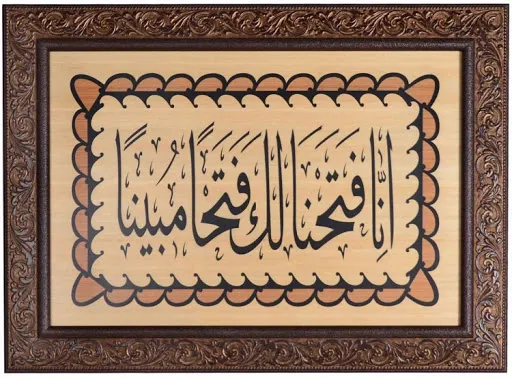 انَّا فَتَحْنَا لَكَ فَتَحًا مُبينًا